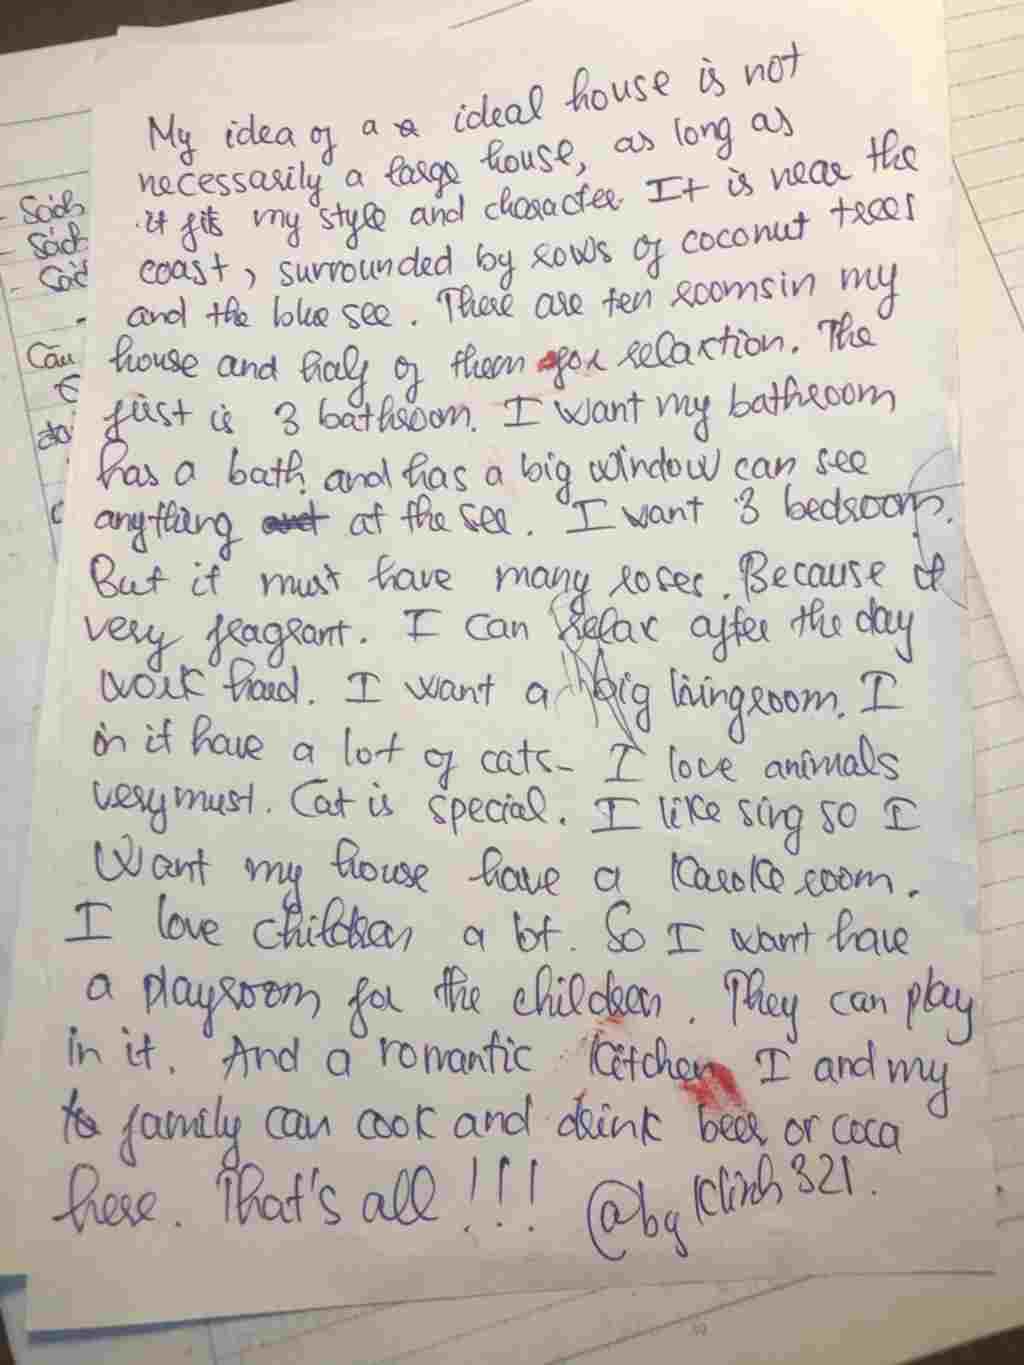 My idea of a ideal house is not
necessarily a large house, as long as
it fits my style and character. It is near the
coast, surrounded by rows of coconut trees
and the blue see. There are ten rooms in my
house and half of them for relaxtion. The
first is 3 bathroom. I want my bathroom
has a bath and has a big window can see
anything at the see. I want 3 bedroom.
But it must have many roses. Because it
very fragrant. I can relax after the day
work hard. I want a big livingroom. I
in it have a lot of cats. I love animals
very must. Cat is special. I like sing so I
want my house have a Karoke room.
I love children a lot. So I want have
a playroom for the children. They can play
in it. And a romantic Kitchen I and my
family can cook and drink beer or coca
here. That's all!!! @by Klinh321.
- Sách
- Sách
- Sác
Câu